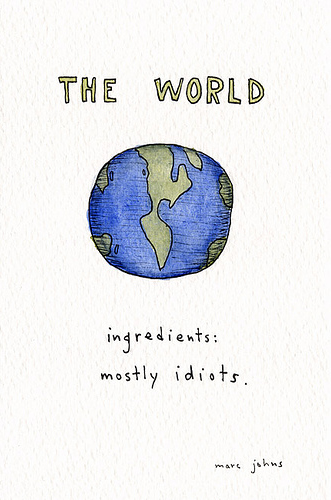 THE WORLD
ingredients:
mostly idiots.
marc johns